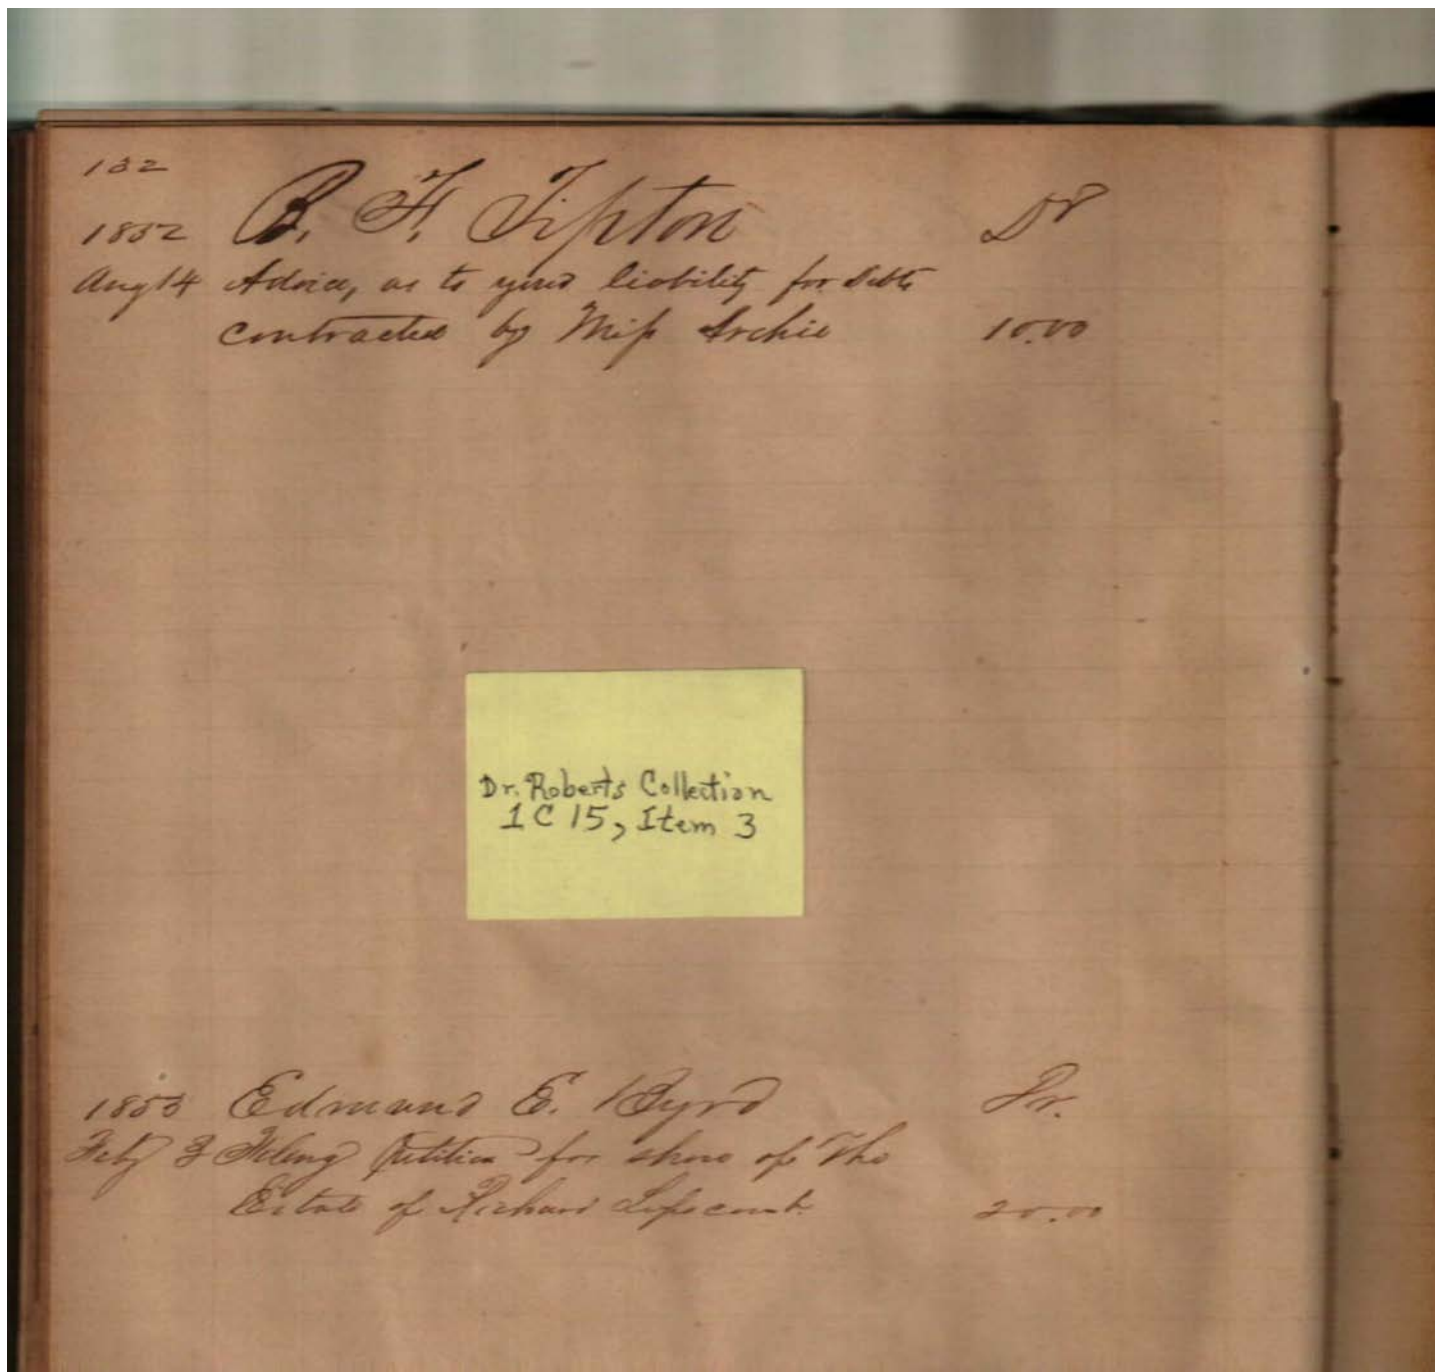 132
1852 B. F. Tipton Dr
Aug 14 Advice, as to your liability for debts
contracted by Miss Archie 10.00
Dr. Roberts Collection
1 C 15, Item 3
1853 Edmund E. Byrd Dr.
Feby 3 Fileing Petition for share of The
Estate of Richard Lipscomb. 20.00